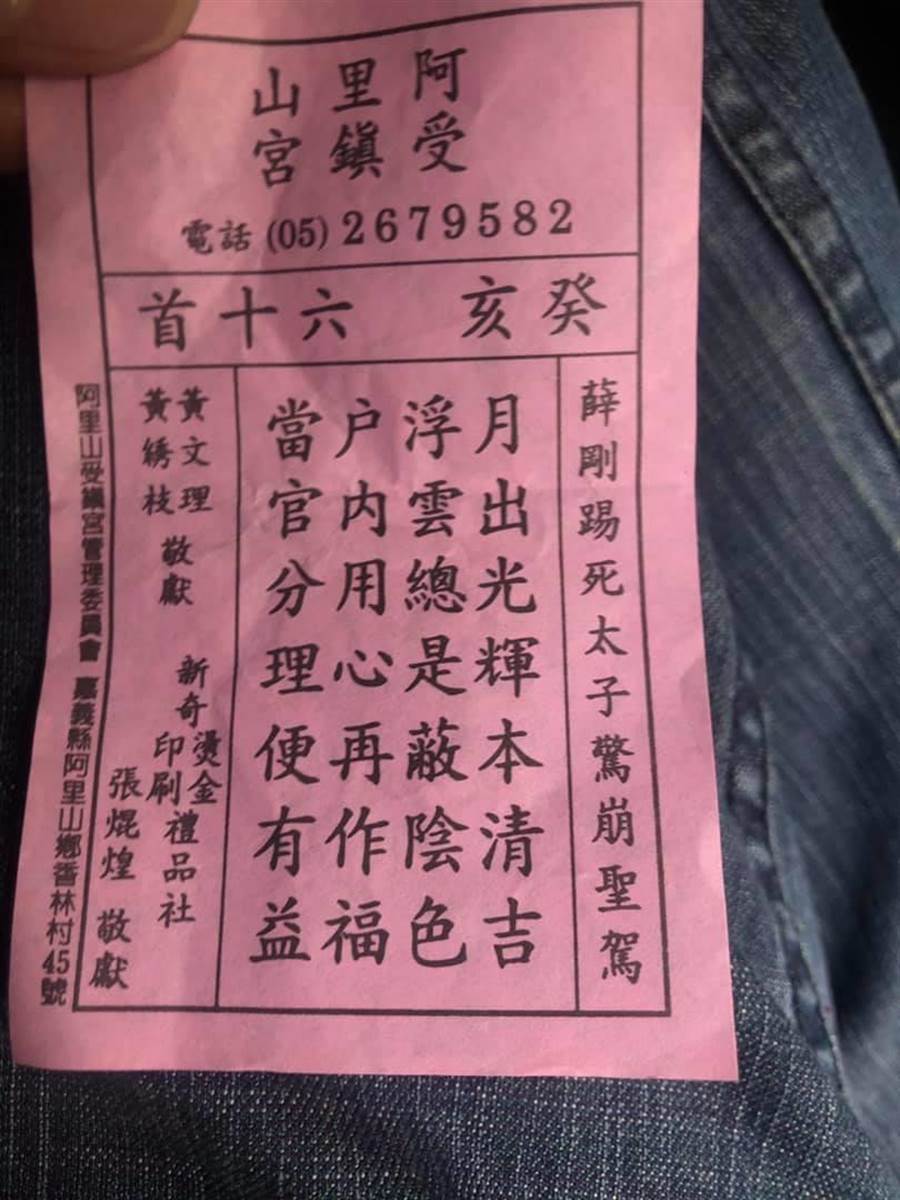 阿里山
受鎮宮
電話 (05) 2679582
癸亥 六十首
薛剛踢死太子驚崩聖駕
月出光輝本清吉
浮雲總是蔽陰色
户内用心再作福
當官分理便有益
黃文理
黃綉枝
敬獻
新奇燙金印刷禮品社
張焜煌 敬獻
阿里山受鎮宮管理委員會 嘉義縣阿里山鄉香林村45號